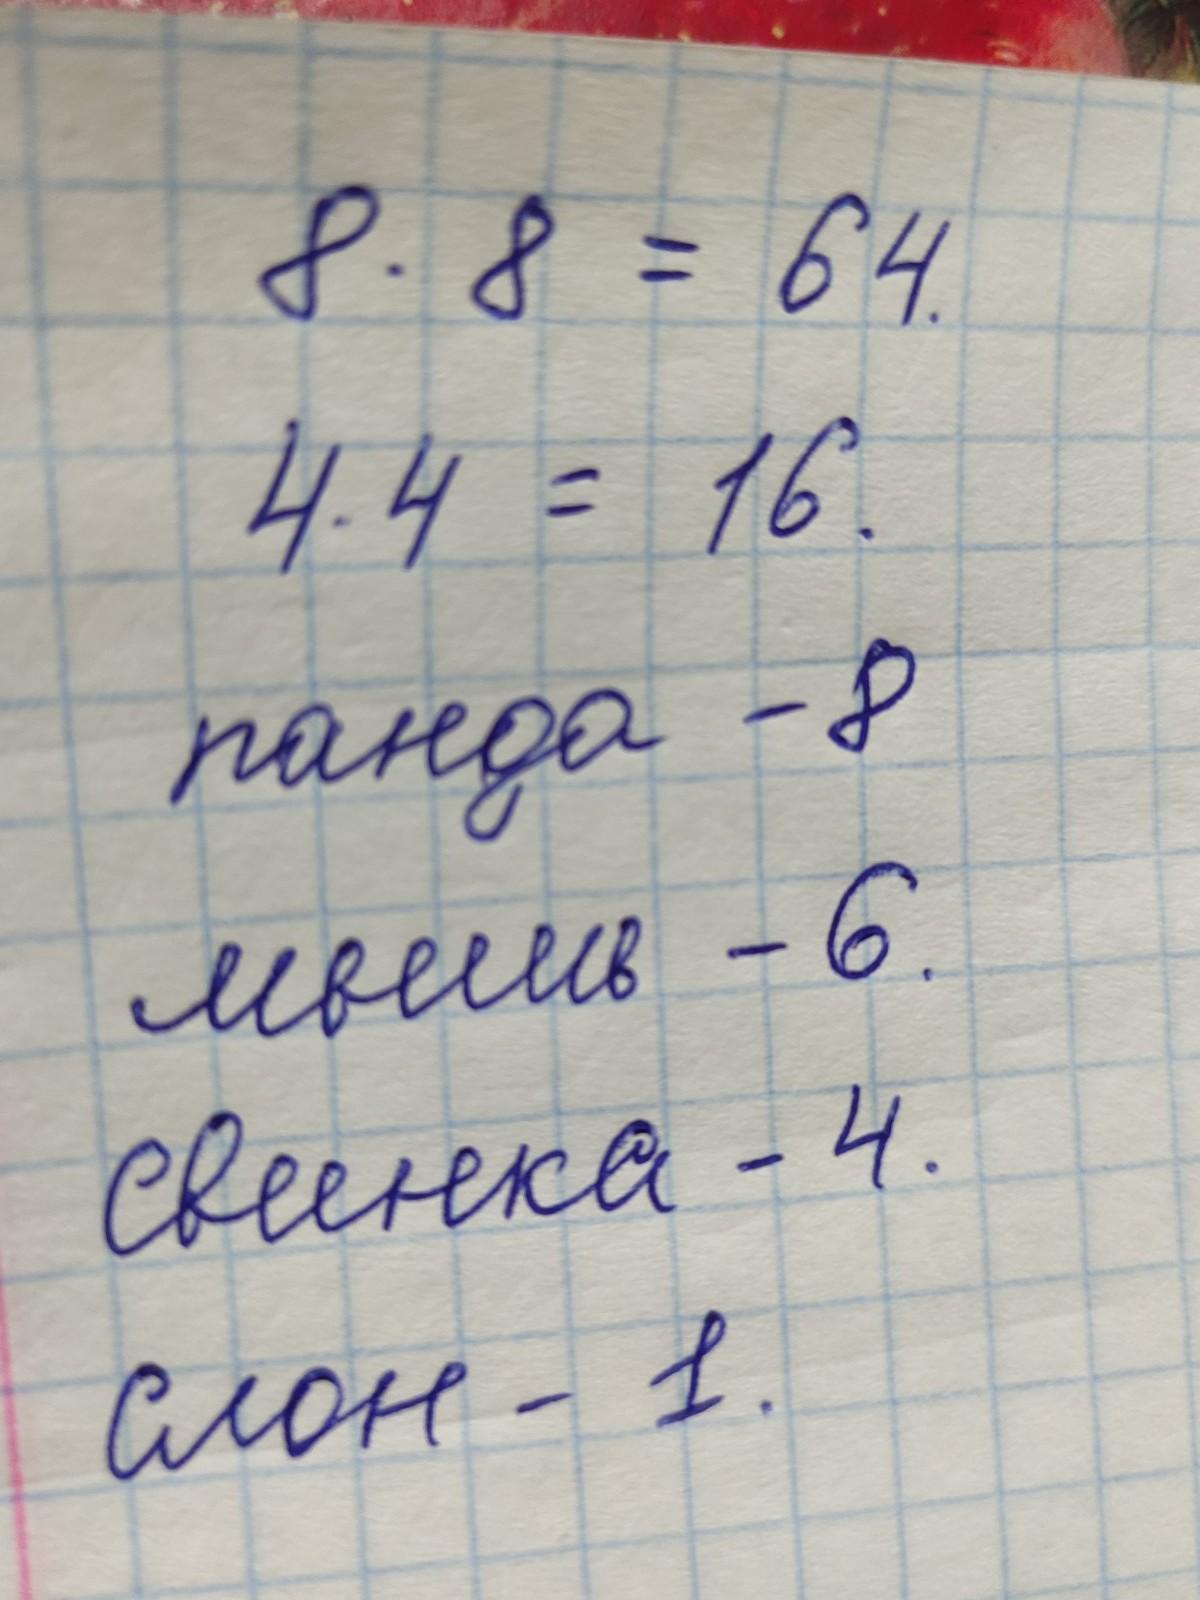 8 · 8 = 64.
4 · 4 = 16.
панда - 8
мышь - 6.
свинка - 4.
слон - 1.